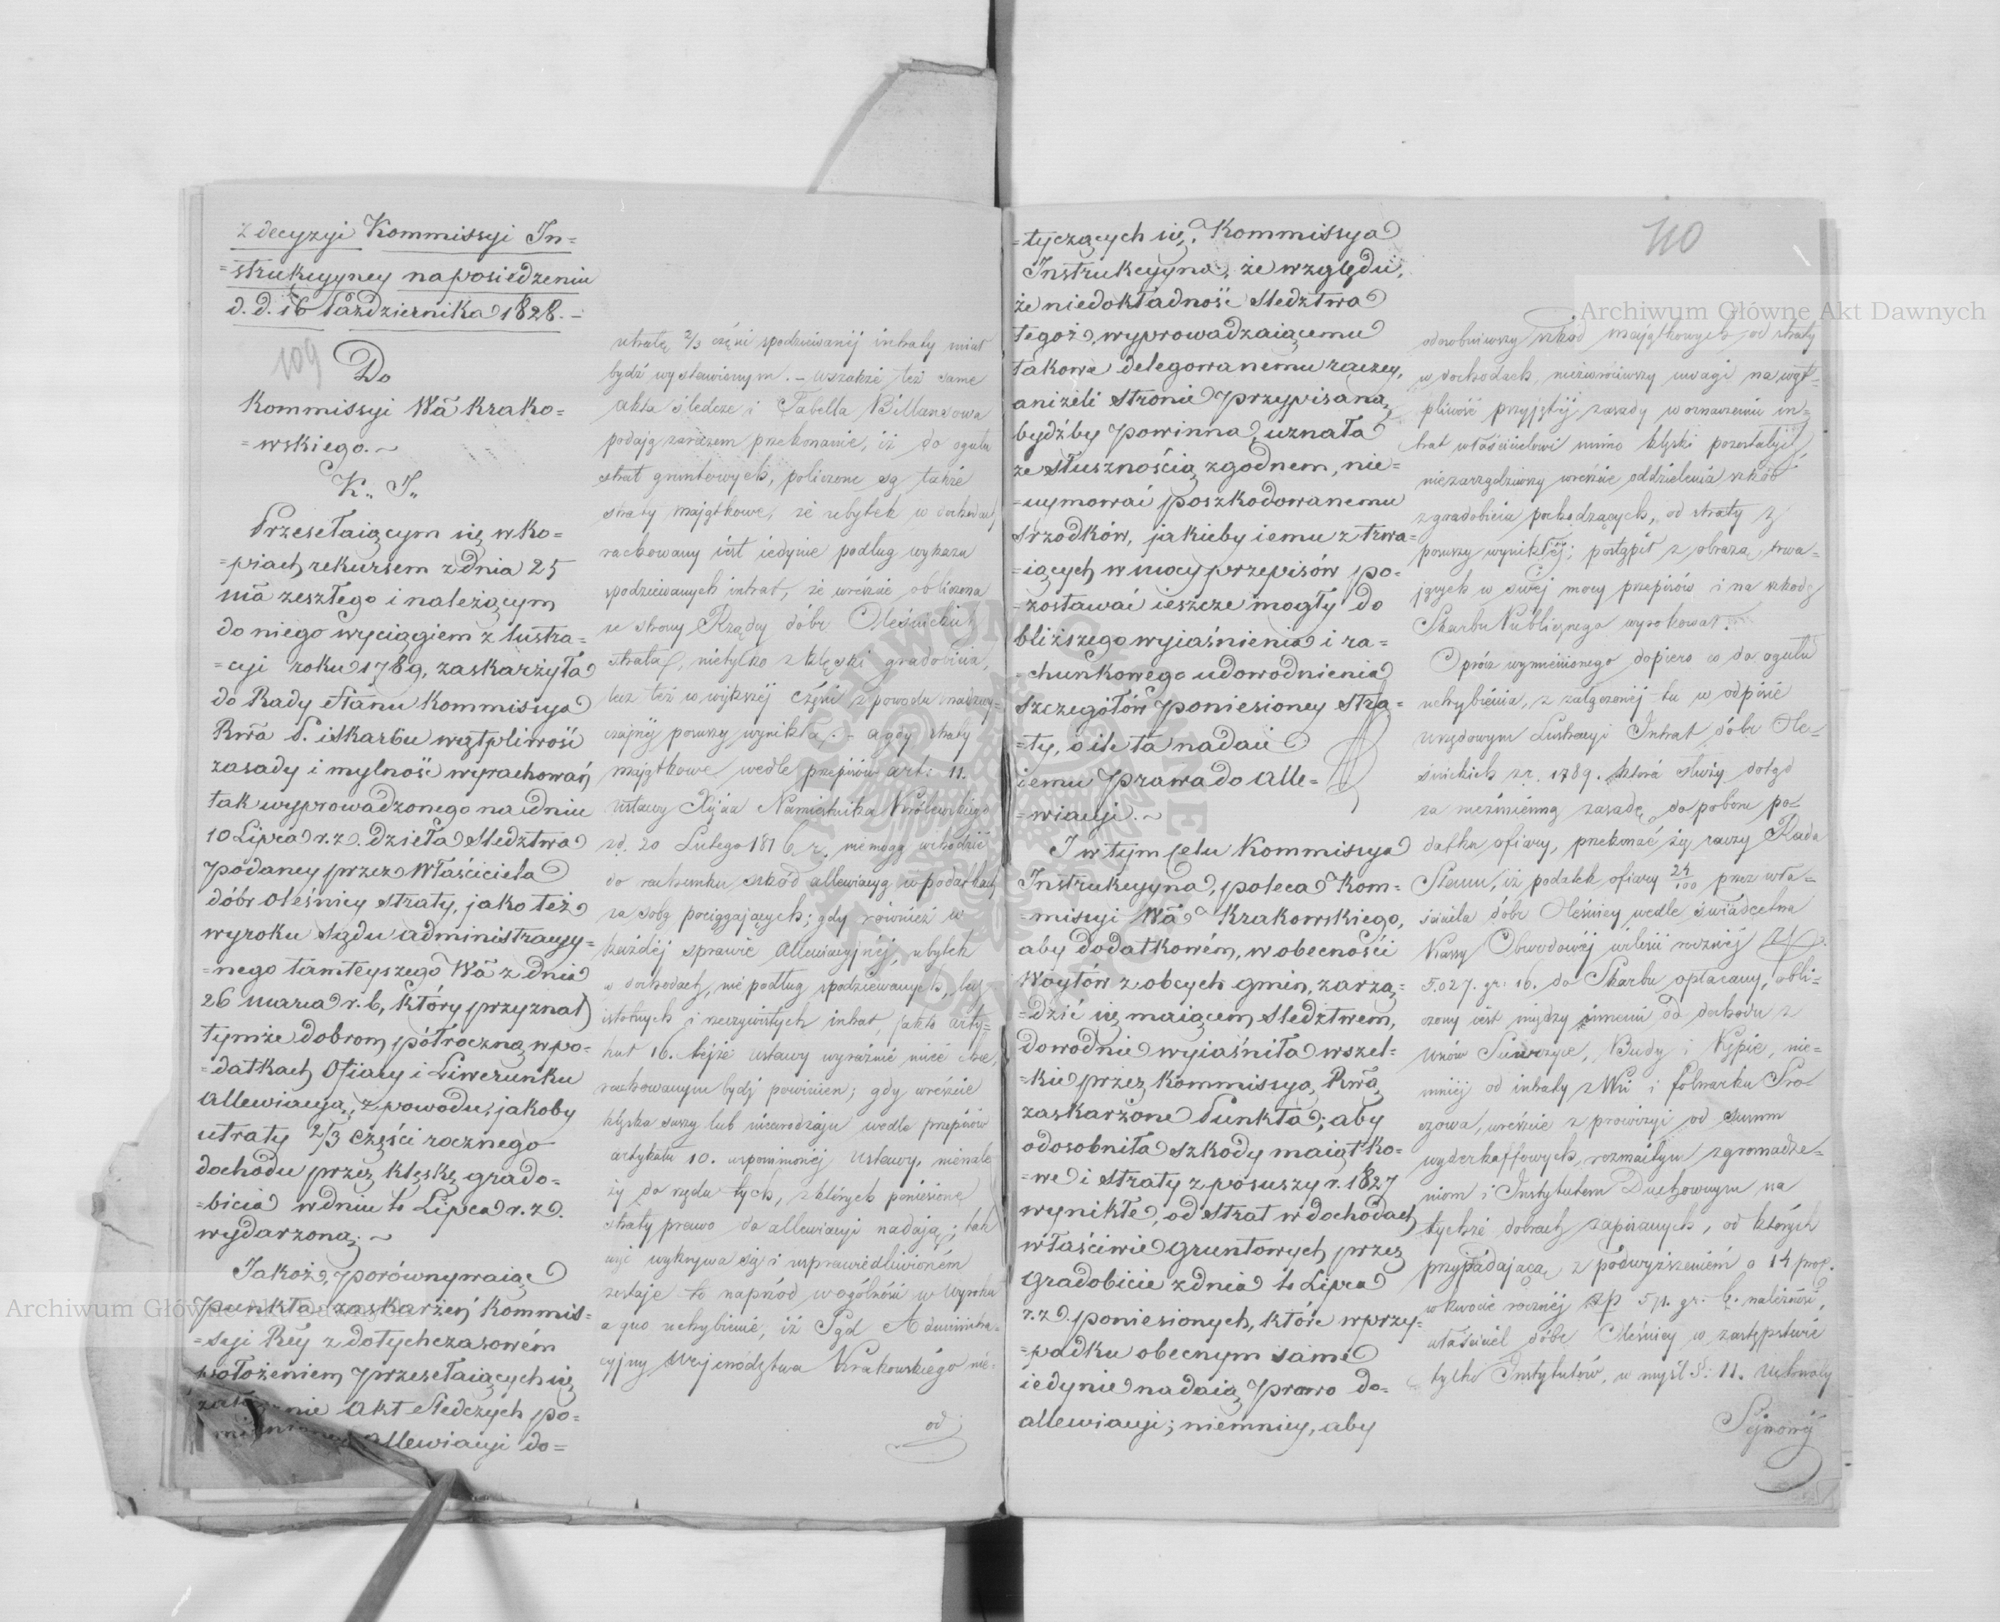 z decyzyi Kommissyi In=
=strukcyyney na posiedzeniu
d. d. 16 Października 1828. –
109
Do
Kommissyi Wa Krako=
=wskiego. ~
K. I.
Przesełaiącym się w ko=
=piach rekursem z dnia 25
ma zeszłego i należącym
do niego wyciągiem z lustra=
=cyi roku 1789, zaskarżyła
do Rady Stanu Kommissya
Rwa P. i Skarbu wątpliwość
zasady i mylność wyrachowań
tak wyprowadzonego na dniu
10 Lipca r. z. dzieła Sledztwa
podaney przez Właściciela
dóbr Oleśnicy straty, jako też
wyroku Sądu administracyy=
=nego tamteyszego Wa z dnia
26 marca r. b, który przyznał
tymże dobrom półroczną w po=
=datkach Ofiary i Liwerunku
allewiacyą, z powodu, jakoby
utraty 2/3 części rocznego
dochodu przez klęskę grado=
=bicia w dniu to Lipca r. z.
wydarzoną. ~
Jakoż, porównywaiąc
punkta zaskarżeń Kommis=
=syi Rey z dotychczasowém
położeniem przesełaiących się
Akt Sledczych po=
allewiacyi do=
utratę 2/3 części spodziewanéj intraty miał
bydź wystawionym. – wszakże też same
Akta śledcze i Tabella Billansowa
podają zarazem przekonanie, iż do ogułu
strat gruntowych, policzone są także
straty majątkowe, że ubytek w dochodach
rachowany iest iedynie podług wykazu
spodziewanych intrat, że wreście obliczona
ze strony Rządcy dóbr Oleśnickich
strata, nietylko z klęski gradobicia,
lecz też w większéj części z powodu nadzwy=
czajnéj posuszy wynikła; – a gdy straty
majątkowe wedle przepisów art: 11.
ustawy Xięcia Namiestnika Królewskiego
z d. 20 Lutego 1816 r. nie mogą wchodzić
do rachunku szkód allewiacyą w podatkach
za sobą pociągających; gdy również w
każdéj sprawie Allewiacyjnéj, ubytek
w dochodach, nie podług spodziewanych, lecz
istotnych i rzeczywistych intrat, jak to arty=
kuł 16. tejże ustawy wyraźnie mieć chce,
rachowanym bydź powinien; gdy wreście
klęska suszy lub nieurodzaju wedle przepisów
artykułu 10. wspomnionéj Ustawy, nienale
ży do rzędu tych, z których poniesione
straty prawo do allewiacyi nadają; tak
więc wykrywa się i usprawiedliwioném
zostaje to naprzód w ogólności w Wyroku
a quo uchybienie, iż Sąd Administra=
cyjny Województwa Krakowskiego nie=
od
110
=tyczących się. Kommissya
Instrukcyyna, ze względu,
że niedokładność Sledztwa
tegoż, wyprowadzaiącemu
takowe delegowanemu raczey,
aniżeli stronie przypisaną
bydźby powinna, uznała
ze słusznością zgodnem, nie=
=uymować poszkodowanemu
srzodków, jakieby iemu z trwa=
=iących w mocy przepisów po=
=zostawać ieszcze mogły do
bliższego wyjaśnienia i ra=
=chunkowego udowodnienia
szczegółów poniesioney stra=
=ty, o ile ta nadać
iemu prawa do alle=
=wiacyi. ~
I w tym celu Kommissya
Instrukcyyna, poleca Kom=
=missyi Wa Krakowskiego,
aby dodatkowém, w obecności
Woytów z obcych gmin, zarzą=
=dzić się maiącem Sledztwem,
dowodnie wyjaśniła wszel=
=kie przez Kommissyą Rwą
zaskarżone Punkta; aby
odosobniła szkody maiątko=
=we i straty z posuszy r. 1827
wynikłe, od strat w dochodach
właściwie gruntowych przez
gradobicie z dnia to Lipca
r. z. poniesionych, które w przy=
=padku obecnym same
iedynie nadaią prawo do
allewiacyi; niemniey, aby
odosobniwszy szkód majątkowych od straty
w dochodach, niezwróciwszy uwagi na wąt=
pliwość przyjętéj zasady w oznaczeniu in=
trat właścicielowi mimo klęski pozostałych
niezarządziwszy wreście oddzielenia szkód
z gradobicia pochodzących, od straty z
posuszy wynikłéj; postąpił z obrazą trwa=
jących w swéj mocy przepisów i na szkodę
Skarbu Publicznego wyrokował.
Oprócz wymienionego dopiero co do ogułu
uchybienia, z załączonéj tu w odpisie
urzędowym Lustracyi Intrat dóbr Ole=
śnickich z r. 1789. która służy dotąd
za niezmienną zasadę do poboru po=
datku ofiary, przekonać się raczy Rada
Stanu, iż podatek ofiary 24/100 przez wła=
ściciela dóbr Oleśnicy wedle świadectwa
Kassy Obwodowéj w ilości roczniej Zł.
5.027. gr: 16. do Skarbu opłacany, obli=
czony iest między innemi od dochodu z
wsiów Suworzyce, Budy i Kępie, nie=
mniéj od intraty z Wsi i folwarku Pro
czowa, wreście z prowizyi od summ
wyderkaffowych, rozmaitym zgromadze=
niom i Instytutom Duchownym na
tychże dobrach zapisanych, od których
przypadającą z podwyższeniem o 14 proc.
w kwocie roczniéj zp 571. gr: 6. należność,
właściciel dóbr Oleśnicy w zastępstwie
tychże Instytutów, w myśl §: 11. Uchwały
Sejmowéj
Archiwum Główne Akt Dawnych
Archiwum Główne Akt Dawnych
ARCHIWUM GŁÓWNE AKT DAWNYCH